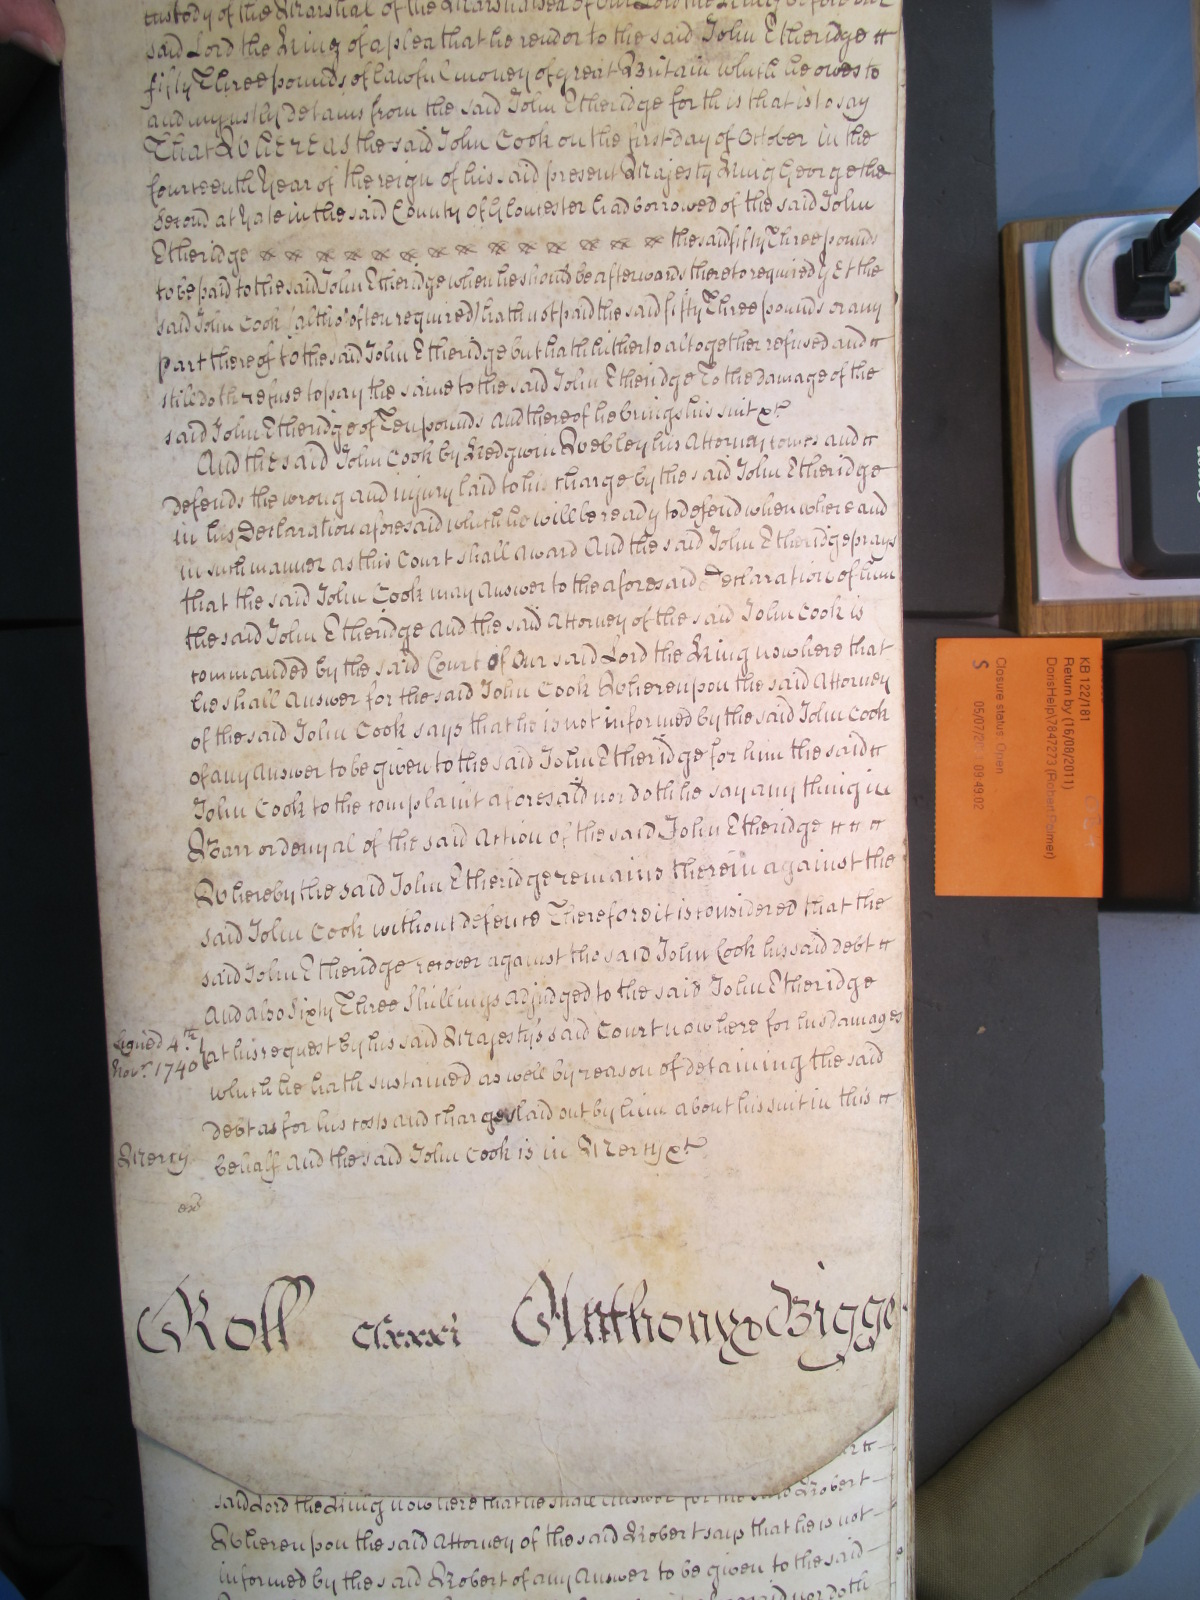 custody of the Marshal of the Marshalsea of our Lord the King before our
said Lord the King of a plea that he render to the said John Etheridge
fifty Three pounds of lawful money of great Britain which he owes to
and unjustly detains from the said John Etheridge for this that is to say
That Whereas the said John Cook on the first day of October in the
fourteenth Year of the reign of his said present Majesty King George the
Second at Yate in the said County of Gloucester had borrowed of the said John
Etheridge the said fifty Three pounds
to be paid to the said John Etheridge when he should be afterwards thereto required Yet the
said John Cook (altho' often required) hath not paid the said fifty Three pounds or any
part thereof to the said John Etheridge but hath hitherto altogether refused and
still doth refuse to pay the same to the said John Etheridge To the damage of the
said John Etheridge of Ten pounds And thereof he brings his suit &c
And the said John Cook by Webley his Attorney comes and
defends the wrong and injury laid to his charge by the said John Etheridge
in his Declaration aforesaid which he will be ready to defend when where and
in such manner as this Court shall Award And the said John Etheridge prays
that the said John Cook may Answer to the aforesaid Declaration of him
the said John Etheridge And the said Attorney of the said John Cook is
commanded by the said Court of Our said Lord the King now here that
he shall Answer for the said John Cook Whereupon the said Attorney
of the said John Cook says that he is not informed by the said John Cook
of any Answer to be given to the said John Etheridge for him the said
John Cook to the complaint aforesaid nor doth he say any thing in
Barr or denyal of the said Action of the said John Etheridge
Whereby the said John Etheridge remains therein against the
said John Cook without defence Therefore it is considered that the
said John Etheridge recover against the said John Cook his said debt
And also Sixty Three Shillings adjudged to the said John Etheridge
Signed 4th
Novr. 1740
at his request by his said Majesty's said Court now here for his damages
which he hath sustained as well by reason of detaining the said
debt as for his costs and charges laid out by him about his suit in this
Mercy
behalf And the said John Cook is in Mercy &c
Roll clxxxi Anthony & Bigge
said Lord the King now here that he shall Answer for the said Robert
Whereupon the said Attorney of the said Robert says that he is not
informed by the said Robert of any Answer to be given to the said
KB 122/181
Return by (16/08/2011)
DorisHelp\7847273 (Robert Palmer)
Closure status: Open
S 05/07/20 09:49:02